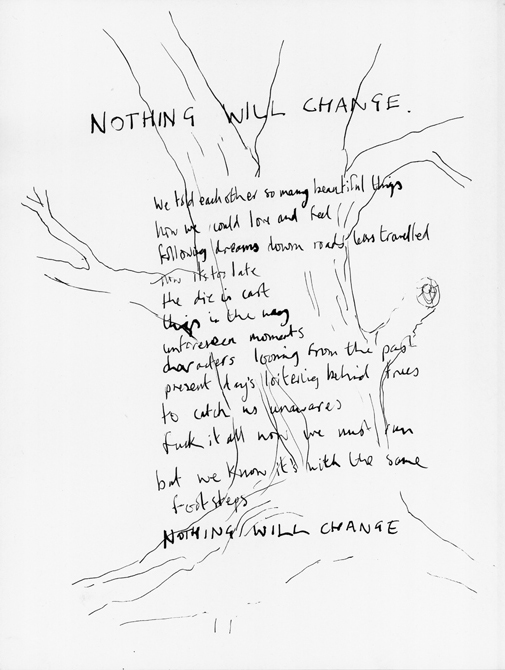 NOTHING WILL CHANGE.
We told each other so many beautiful things
how we could love and feel
following dreams down roads less travelled
now its too late
the die is cast
things in the way
unforeseen moments
characters looming from the past
present day's loitering behind trees
to catch us unawares
fuck it all now we must run
but we know it's with the same
footsteps
NOTHING WILL CHANGE